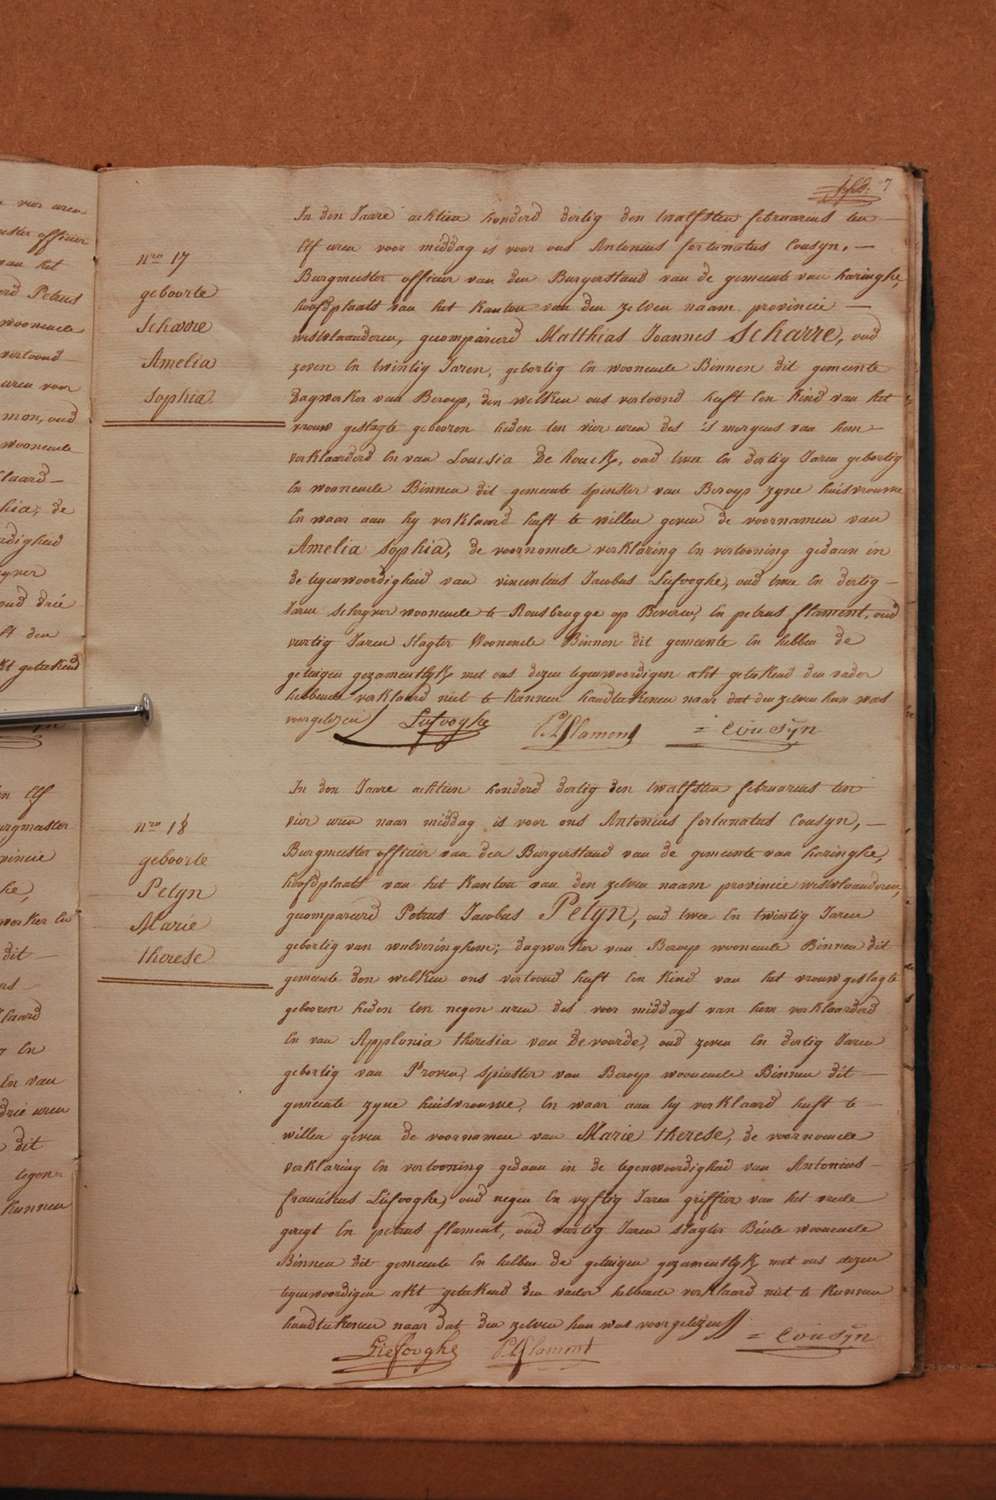 7
nro 17
geboorte
Scharre
Amelia
Sophia
In den Jaare achtien honderd dertig den twalfsten februarius ten
Elf uren voor middag is voor ons Antonius fortunatus Cousyn,
Burgmeester officier van den Burgerstand van de gemeente van haringhe,
hoofdplaats van het kanton van den zelven naam provincie
westvlaanderen, gecompareerd Matthias Joannes Scharre, oud
zeven En twintig Jaren, gebortig En woonende Binnen dit gemeente
Dagwerker van Beroep, den welken ons vertoond heeft Een Kind van het
vrouw geslagte gebooren heden ten vier uren des 's morgens van hem
verklaarderd En van Louisia De houck, oud twee En dertig Jaren gebortig
En woonende Binnen dit gemeente spinster van Beroep zyne huisvrouwe
En waar aan hy verklaard heeft te willen geven de voornamen van
Amelia Sophia, de voornoemde verklaring En vertooning gedaan in
de tegenwoordigheid van vincentius Jacobus Liefooghe, oud twee En dertig
Jaren schryver woonende te Rousbrugge op Beveren, En petrus flament, oud
veertig Jaren slagter Woonende Binnen dit gemeente En hebben de
getuigen gezamentlyk met ons dezen tegenwoordigen akt getekend den vader
hebbende verklaard niet te kunnen handteekenen naar dat den zelven hun was
voorgelezen
Liefooghe P. Flament = Cousyn
nro 18
geboorte
Petyn
Marie
therese
In den Jaare achtien honderd dertig den twalfsten februarius ten
vier uren naar middag is voor ons Antonius fortunatus Cousyn,
Burgmeester officier van den Burgerstand van de gemeente van haringhe,
hoofdplaats van het kanton van den zelven naam provincie westvlaanderen,
gecompareerd Petrus Jacobus Petyn, oud twee En twintig Jaren
gebortig van wulveringhem; dagwerker van Beroep woonende Binnen dit
gemeente den welken ons vertoond heeft Een Kind van het vrouw geslagte
gebooren heden ten negen uren des voor middags van hem verklaarderd
En van Applonia theresia van De voorde, oud zeven En dertig Jaren
gebortig van Proven, spinster van Beroep woonende Binnen dit
gemeente zyne huisvrouwe, En waar aan hy verklaard heeft te
willen geven de voornamen van Marie therese, de voornoemde
verklaring En vertooning gedaan in de tegenwoordigheid van Antonius
franciscus Liefooghe, oud negen En vyftig Jaren griffier van het vrede
geregt En petrus flament, oud veertig Jaren slagter Beide woonende
Binnen dit gemeente En hebben de getuigen gezamentlyk met ons dezen
tegenwoordigen akt getekend den vader hebbende verklaard niet te kunnen
handteekenen naar dat den zelven hun was voorgelezen
Liefooghe P. Flament = Cousyn